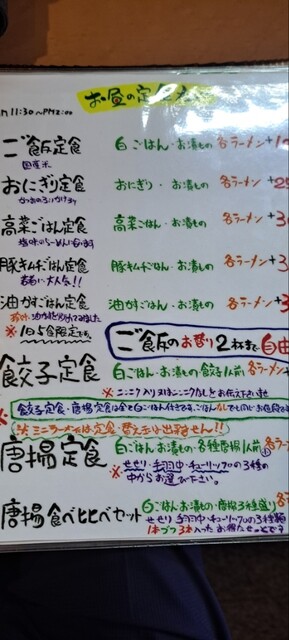 お昼の定食
11:30〜PM2:00
ご飯定食 白ごはん・お漬もの 各ラーメン+1
国産米
おにぎり定食 おにぎり・お漬もの 各ラーメン+2
高菜ごはん定食 高菜ごはん・お漬もの 各ラーメン+3
豚キムチごはん定食 豚キムチごはん・お漬もの 各ラーメン+3
若者に大人気!!
油かすごはん定食 油かすごはん・お漬もの 各ラーメン+3
※1日5食限定です。
ご飯のお替り2杯まで自由
餃子定食 白ごはん・お漬もの・餃子1人前 各ラーメン+
※ニンニク入り又はニンニクなしとお伝え下さいませ
※餃子定食・唐揚定食は全て白ごはん付きです。ごはんなしでも同じお値段です
※ミニラーメンでは定食・替え玉は出来ません!!
唐揚定食 白ごはん・お漬もの・各種唐揚1人前 各ラー
※せせり・手羽中・チューリップの3種の
中からお選び下さい。
唐揚食べ比べセット 白ごはん・お漬もの・唐揚3種盛り 各
せせり・手羽中・チューリップの3種類
1本づつ3本入ったお得なセットです